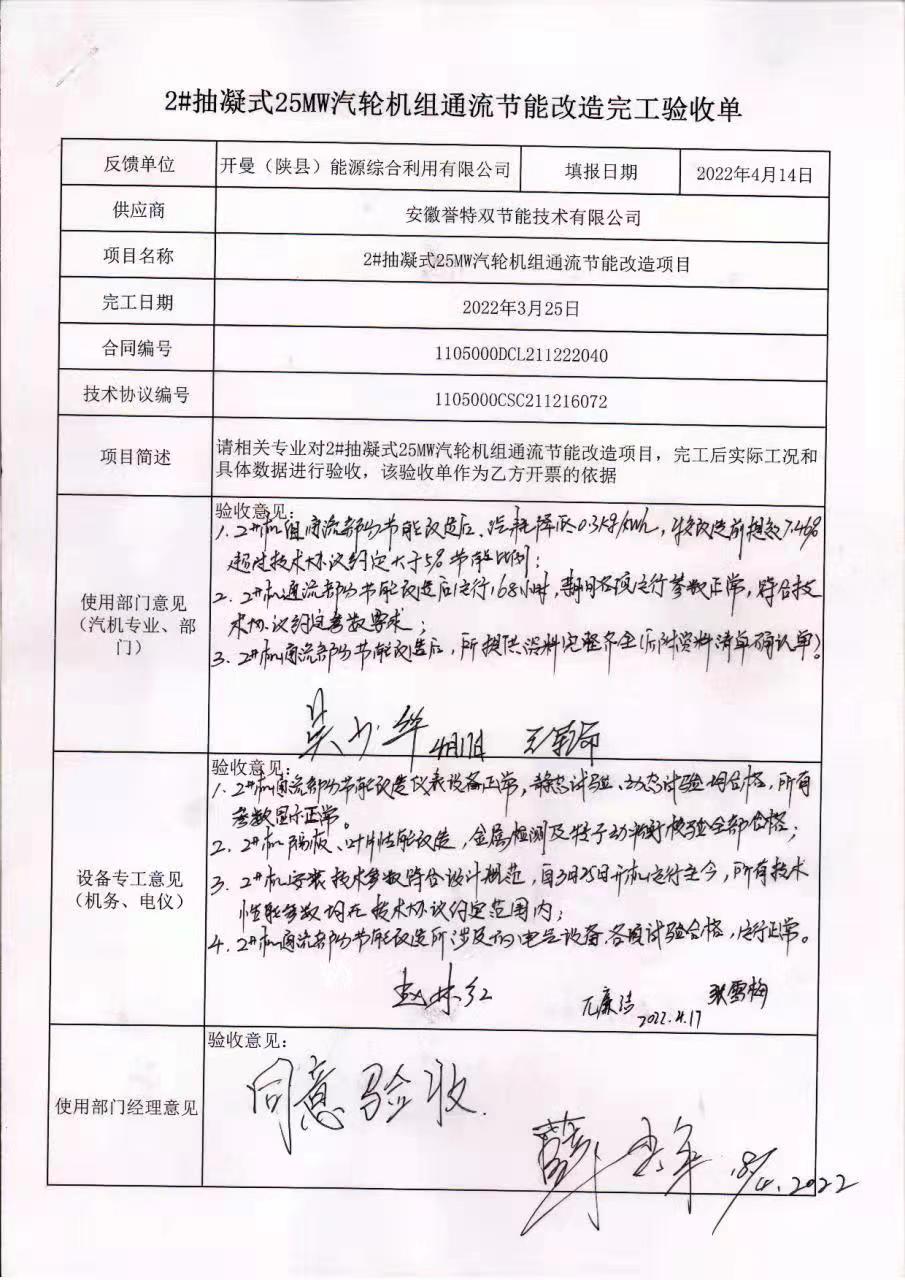 2#抽凝式25MW汽轮机组通流节能改造完工验收单
反馈单位 开曼（陕县）能源综合利用有限公司 填报日期 2022年4月14日
供应商 安徽誉特双节能技术有限公司
项目名称 2#抽凝式25MW汽轮机组通流节能改造项目
完工日期 2022年3月25日
合同编号 1105000DCL211222040
技术协议编号 1105000CSC211216072
项目简述
请相关专业对2#抽凝式25MW汽轮机组通流节能改造项目，完工后实际工况和
具体数据进行验收，该验收单作为乙方开票的依据
使用部门意见
（汽机专业、部
门）
验收意见：
1. 2#机组通流部分节能改造后，汽耗降低0.35kg/kwh，较改造前提效7.46%
超过技术协议约定大于5%节能比例；
2. 2#机通流部分节能改造后运行168小时，期间各项运行参数正常，符合技
术协议约定参数要求；
3. 2#机通流部分节能改造后，所提供资料完整齐全（后附资料清单确认单）。
吴少华 4月17日
设备专工意见
（机务、电仪）
验收意见：
1. 2#机通流部分节能改造仪表设备正常，静态试验、动态试验均合格，所有
参数显示正常。
2. 2#机隔板、叶片性能改造，金属检测及转子动平衡校验全部合格；
3. 2#机安装技术参数符合设计规范，自3月25日开机运行至今，所有技术
性能参数均在技术协议约定范围内；
4. 2#机通流部分节能改造所涉及的电气设备，各项试验合格，运行正常。
赵林红 张雪梅
2022.4.17
使用部门经理意见
验收意见：
同意验收.
18/4.2022